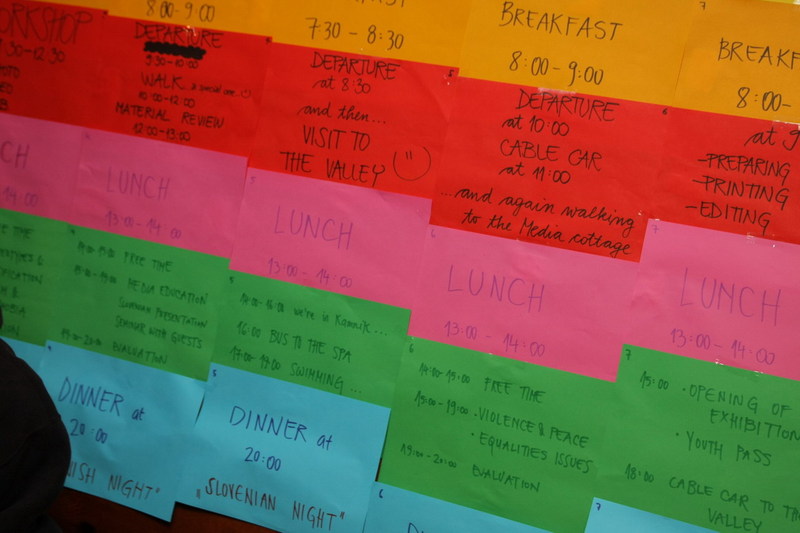 8:00-9:00
WORKSHOP
DEPARTURE
9:30-10:00
WALK
10:00-12:00
MATERIAL REVIEW
12:00-13:00
LUNCH
13:00-14:00
FREE TIME
MEDIA EDUCATION
SEMINAR PRESENTATION
SEMINAR WITH GUESTS
EVALUATION
DINNER at
20:00
NIGHT"
7:30 - 8:30
DEPARTURE
at 8:30
and then...
VISIT TO
THE VALLEY
5
LUNCH
13:00 - 14:00
5
we're in Kamnik...
16:00 BUS TO THE SPA
17:00-19:00 SWIMMING...
5
DINNER at
20:00
„SLOVENIAN NIGHT"
BREAKFAST
8:00-9:00
6
DEPARTURE
at 10:00
CABLE CAR
at 11:00
...and again walking
to the Media cottage
6
LUNCH
13:00-14:00
6
14:00-15:00 FREE TIME
15:00-19:00 •VIOLENCE & PEACE
• EQUALITIES ISSUES
19:00-20:00 EVALUATION
6
7
8:00-
-PREPARING
-PRINTING
-EDITING
7
LUNCH
13:00-14:00
7
15:00 • OPENING OF
EXHIBITION
• YOUTH PASS
18:00 CABLE CAR TO
VALLEY
7